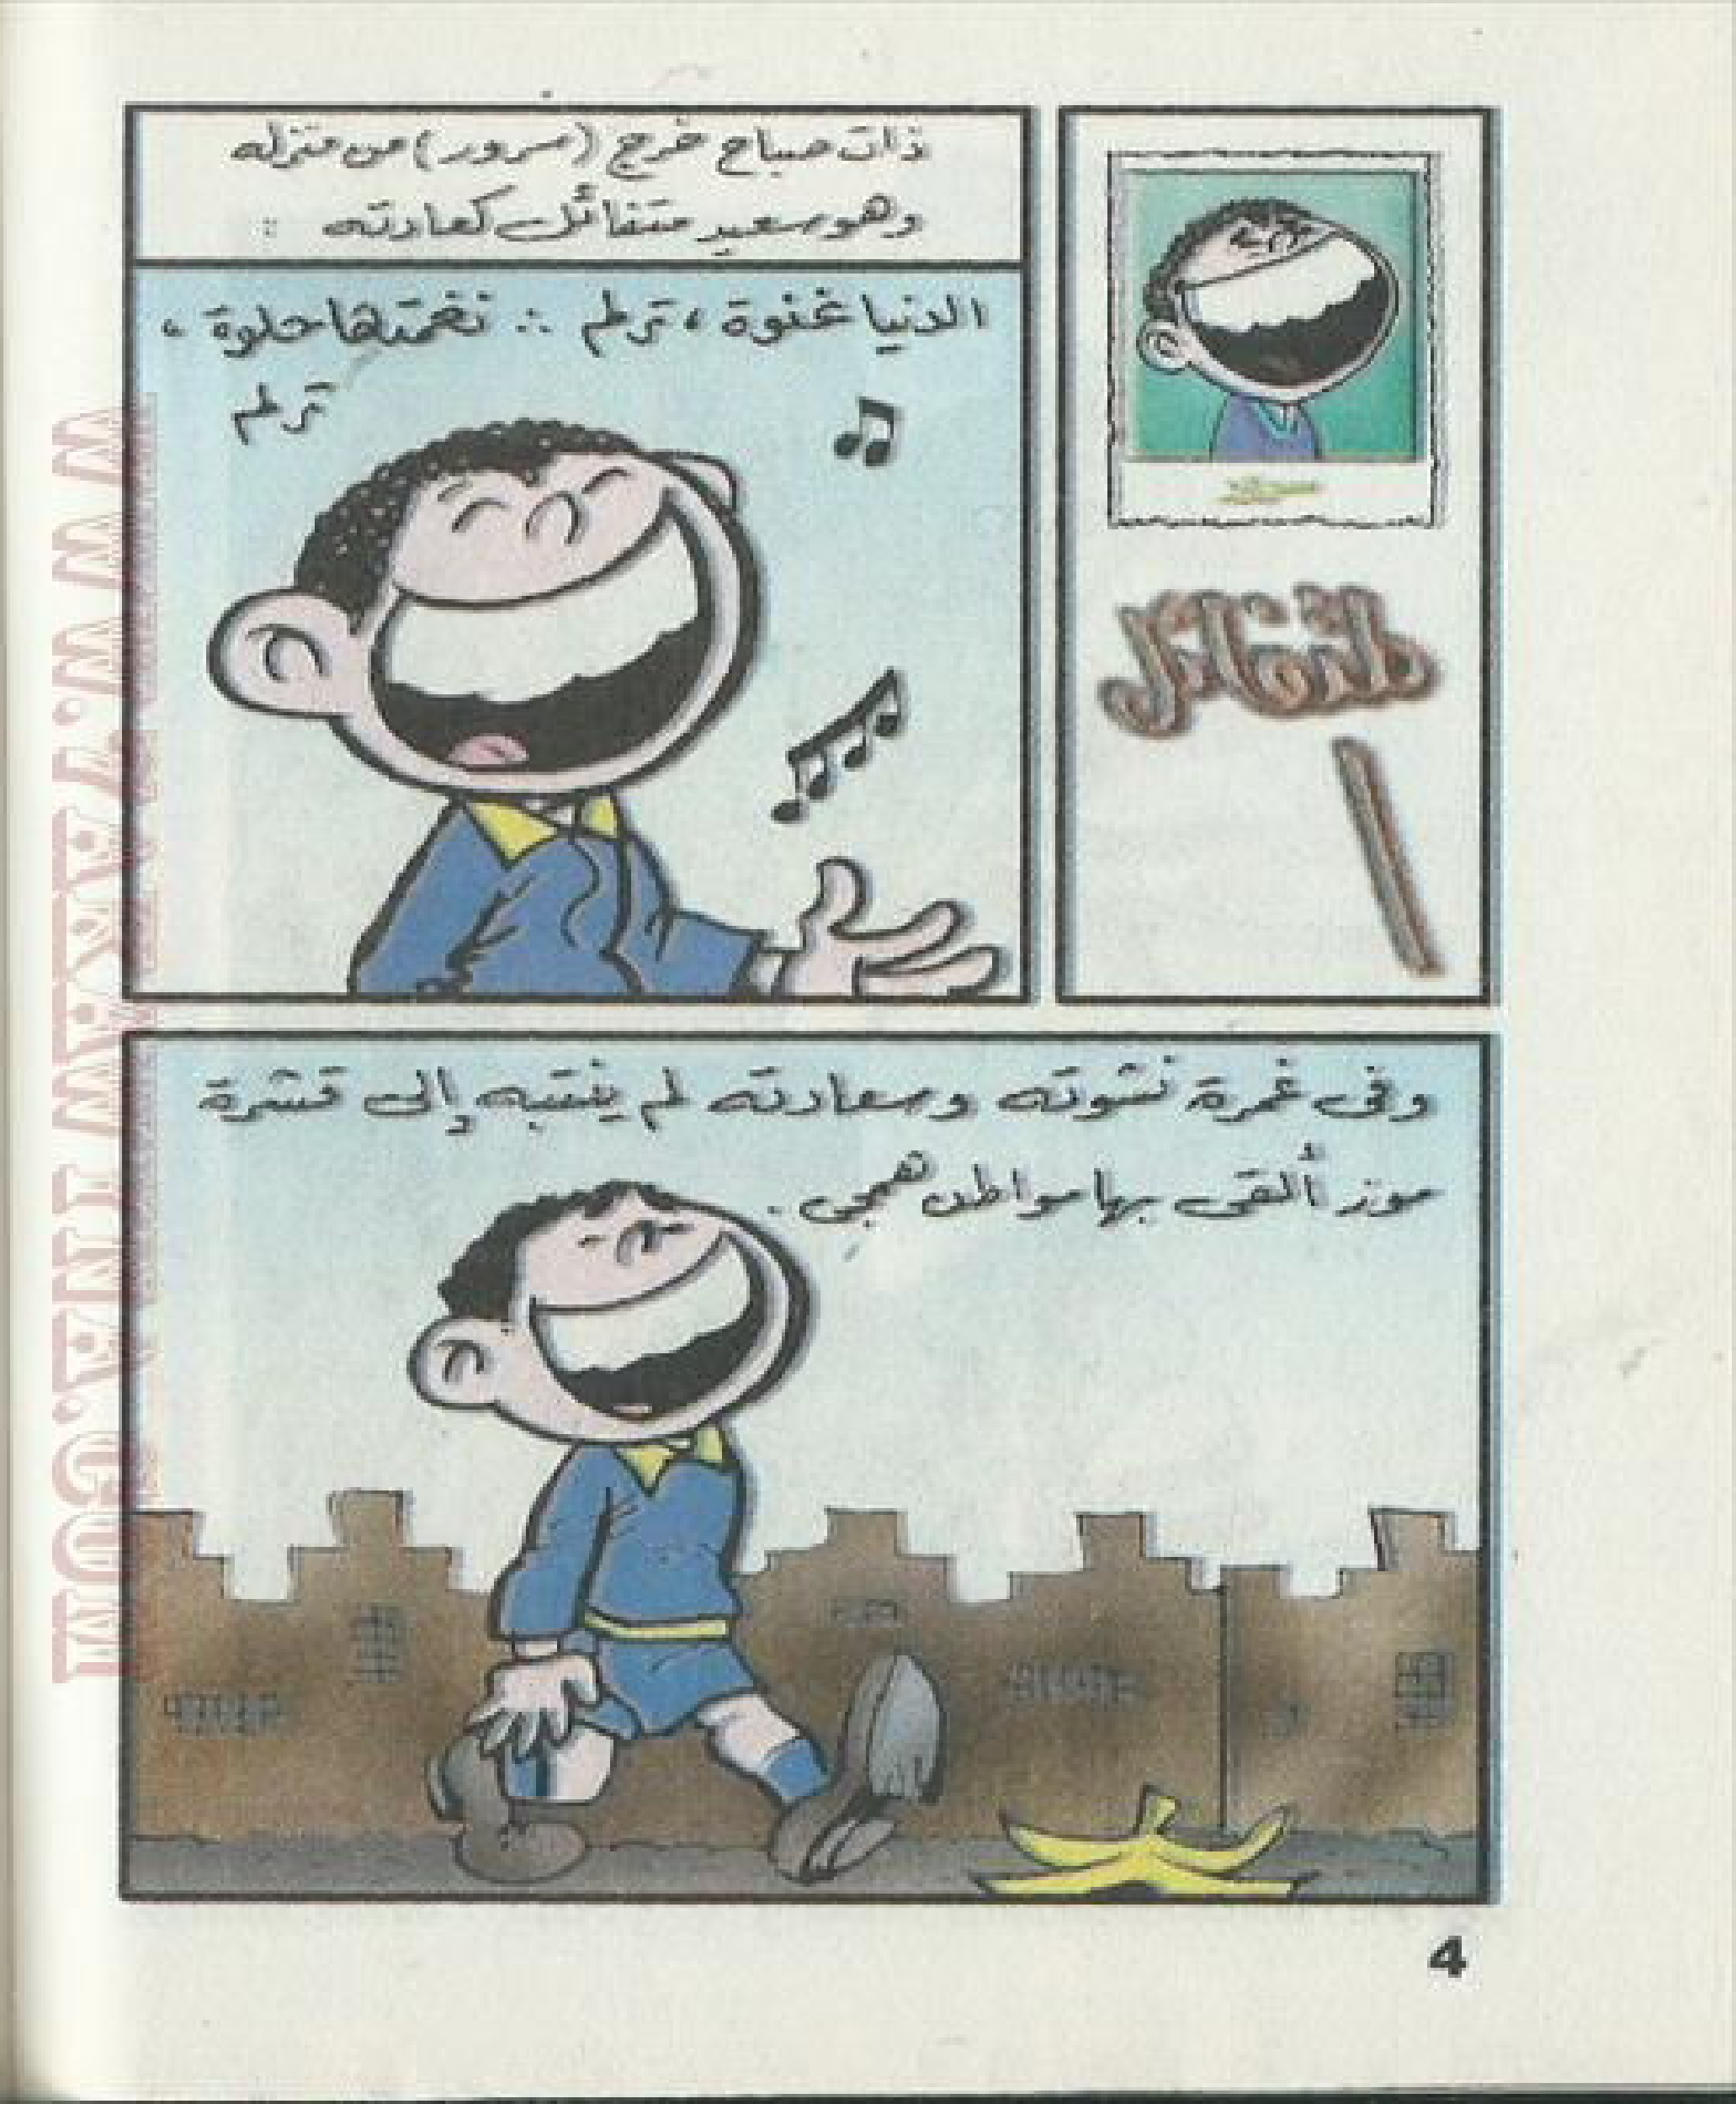 متفائل
ذات صباح خرج (سرور) من منزله
وهو سعيد متفائل كعادته :
الدنيا غنوة ، ترلم .. نغمتها حلوة ،
ترلم
وفى غمرة نشوته وسعادته لم ينتبه إلى قشرة
موز ألقى بها مواطن همجى .
4